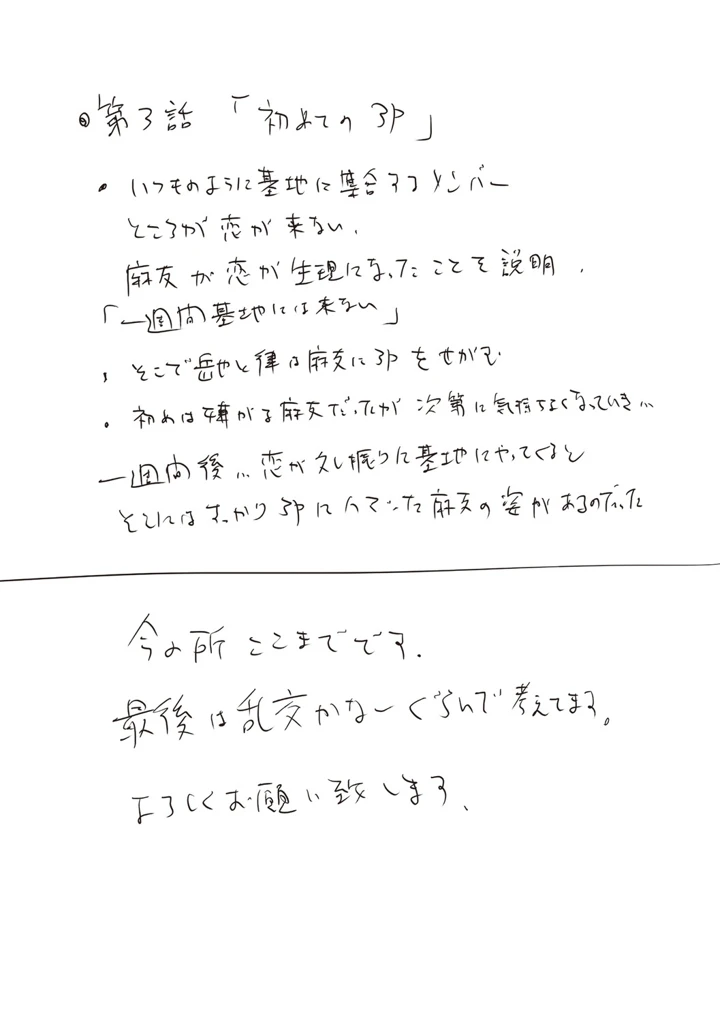 ◎第3話 「初めての3P」
・いつものように基地に集合するメンバー
ところが恋が来ない.
麻友が恋が生理になったことを説明.
「一週間基地には来ない」
、そこで岳也と律は麻友に3Pをせがむ
・初めは嫌がる麻友だったが次第に気持ちよくなっていき…
一週間後… 恋が久し振りに基地にやってくると
そこにはすっかり3Pにハマった麻友の姿があるのだった
今の所ここまでです.
最後は乱交かなーぐらいで考えてます。
よろしくお願い致します.